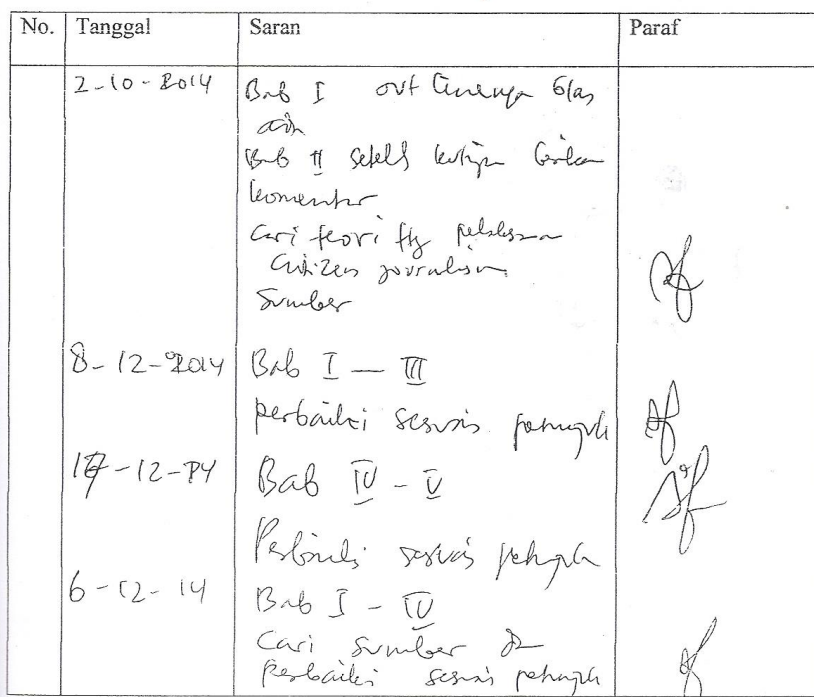 No. Tanggal Saran Paraf
2-10-2014 Bab I out
Bab II kutipan
komentar
Cari teori ttg
Citizen journalism
Sumber
8-12-2014 Bab I — III
perbaiki sesuai petunjuk
17-12-14 Bab IV - V
Perbaiki sesuai petunjuk
6-12-14 Bab I - IV
Cari sumber
Perbaiki sesuai petunjuk